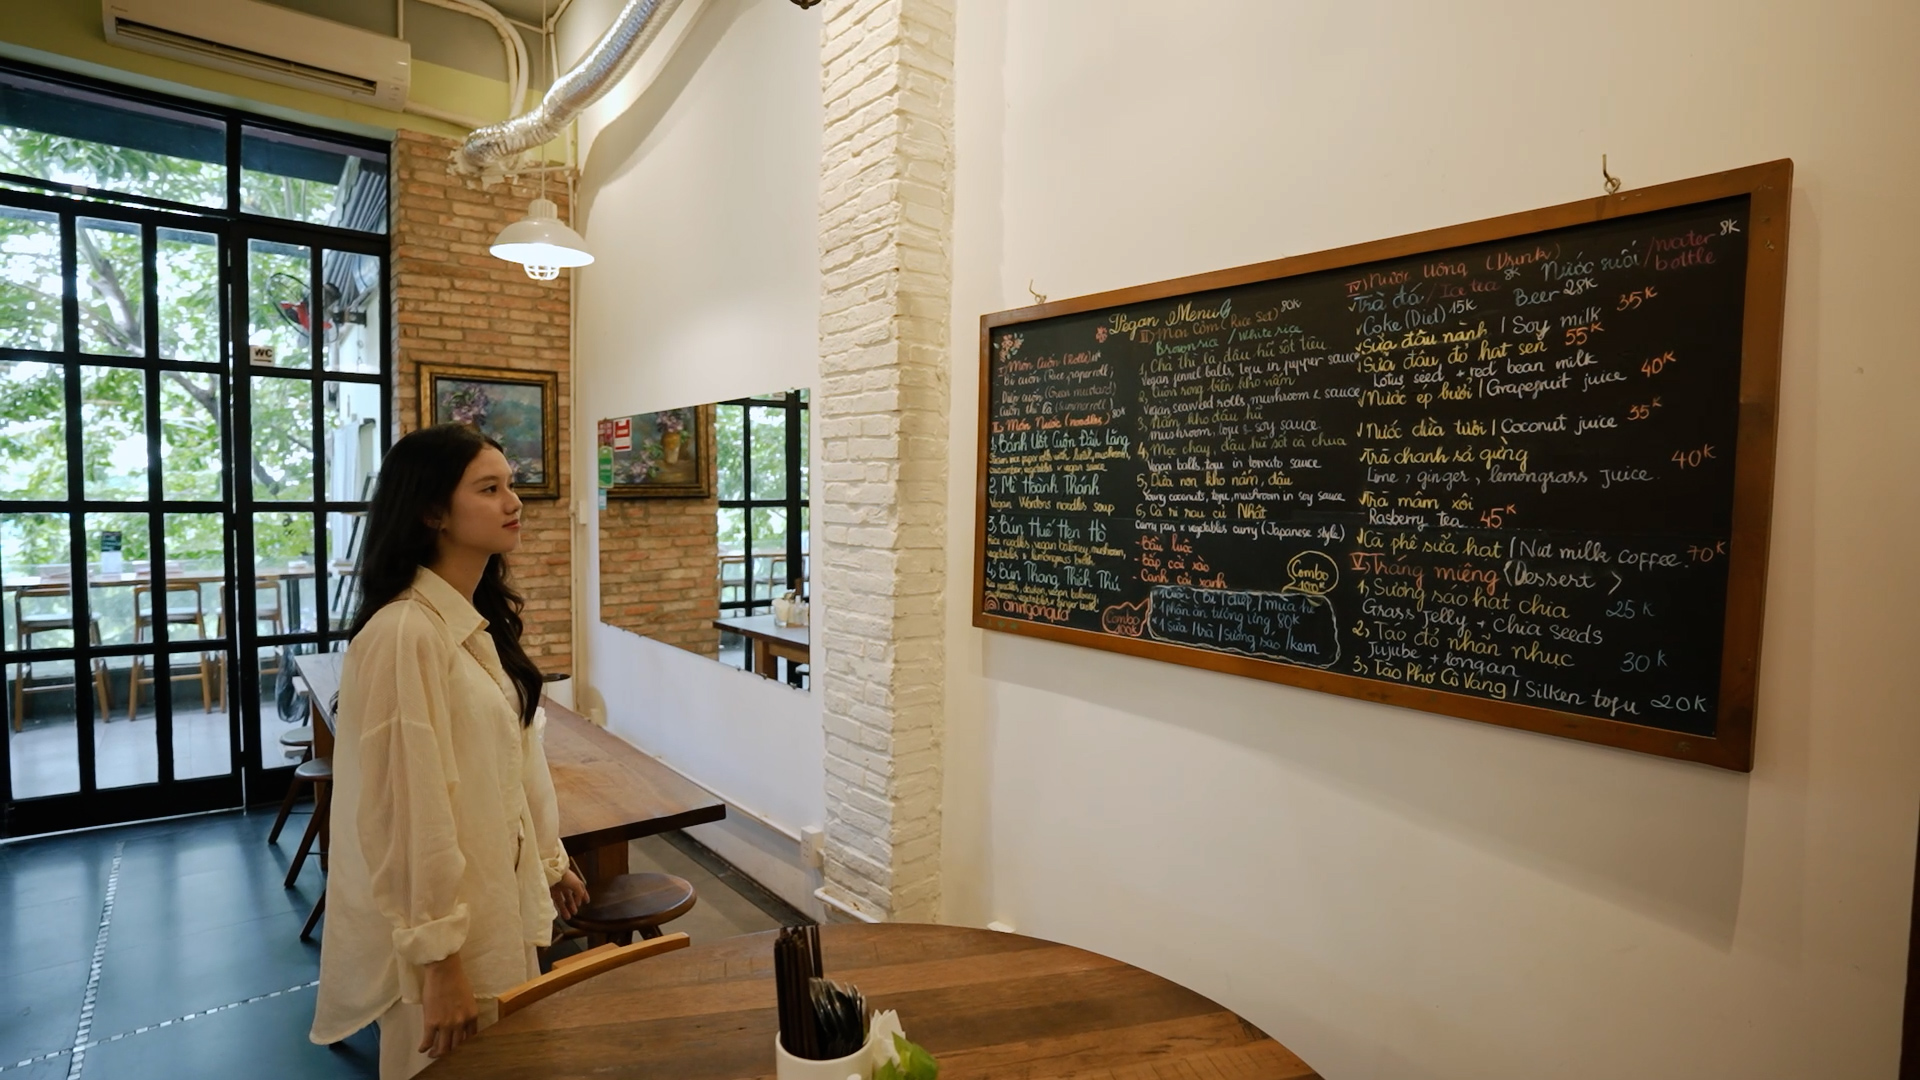 WC
Vegan Menu
I) Món Cuốn (Rolls)
Bì cuốn (Rice paper roll)
Diếp cuốn (Green mustard)
II) Món Nước (noodles) 80k
1, Bánh Ướt Cuộn Đậu Lăng
2, Mì Hoành Thánh
Vegan Wontons noodles soup
3, Bún Huế Hen Hò
Rice noodles, vegan baloney, mushroom,
vegetables & lemongrass broth
4, Bún Thang Thích Thú
anngonqua
Combo
100k
II) Món Cơm (Rice Set) 80k
Brown rice / White rice
1, Chả thì là, đậu hũ sốt tiêu
Vegan fennel balls, tofu in pepper sauce
2, Cuộn rong biển kho nấm
Vegan seaweed rolls, mushroom & sauce
3, Nấm kho đậu hũ
mushroom, tofu & soy sauce
4, Mọc chay, đậu hũ sốt cà chua
Vegan balls, tofu in tomato sauce
5, Dừa non kho nấm, đậu
Young coconuts, tofu, mushroom in soy sauce
6, Cà ri rau củ Nhật
Curry pan & vegetables curry (Japanese style)
- Bầu luộc
- Bắp cải xào
- Canh cải xanh
Combo
100k
1 Cuốn (Bì / diếp /
1 phần ăn tương ứng 80k
1 Sữa / trà / sương sáo / kem
IV) Nước Uống (Drink)
Trà đá / Ice tea 8k Nước suối / water bottle 8k
Coke (Diet) 15k Beer 28k
Sữa đậu nành / Soy milk 35k
Sữa đậu đỏ hạt sen 55k
Lotus seed + red bean milk
Nước ép bưởi / Grapefruit juice 40k
Nước dừa tươi / Coconut juice 35k
Trà chanh sả gừng
Lime, ginger, lemongrass juice. 40k
Trà mâm xôi
Rasberry tea 45k
Cà phê sữa hạt / Nut milk coffee. 70k
V) Tráng miệng (Dessert)
1, Sương sáo hạt chia 25k
Grass Jelly + chia seeds
2, Táo đỏ nhãn nhục
Jujube + longan 30k
3, Tào Phớ Cô Vàng / Silken tofu 20k